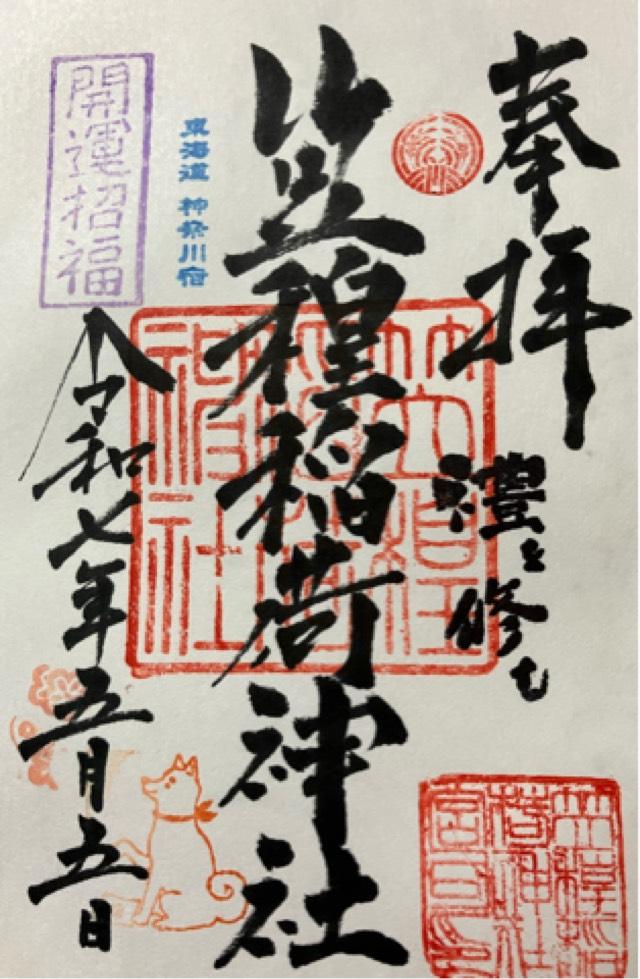 奉拝
禮を修む
笠䅣稲荷神社
東海道 神奈川宿
開運招福
令和七年五月五日
笠䅣稲荷神社
笠䅣稲荷神社宮司之印